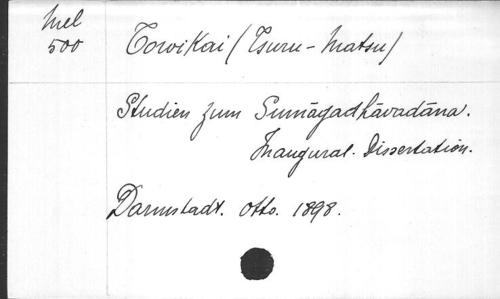 Mel
500
Towikai (Tsuru-Matsu)
Studien zum Sumāgadhāvadāna.
Inaugural-Dissertation.
Darmstadt. Otto. 1898.